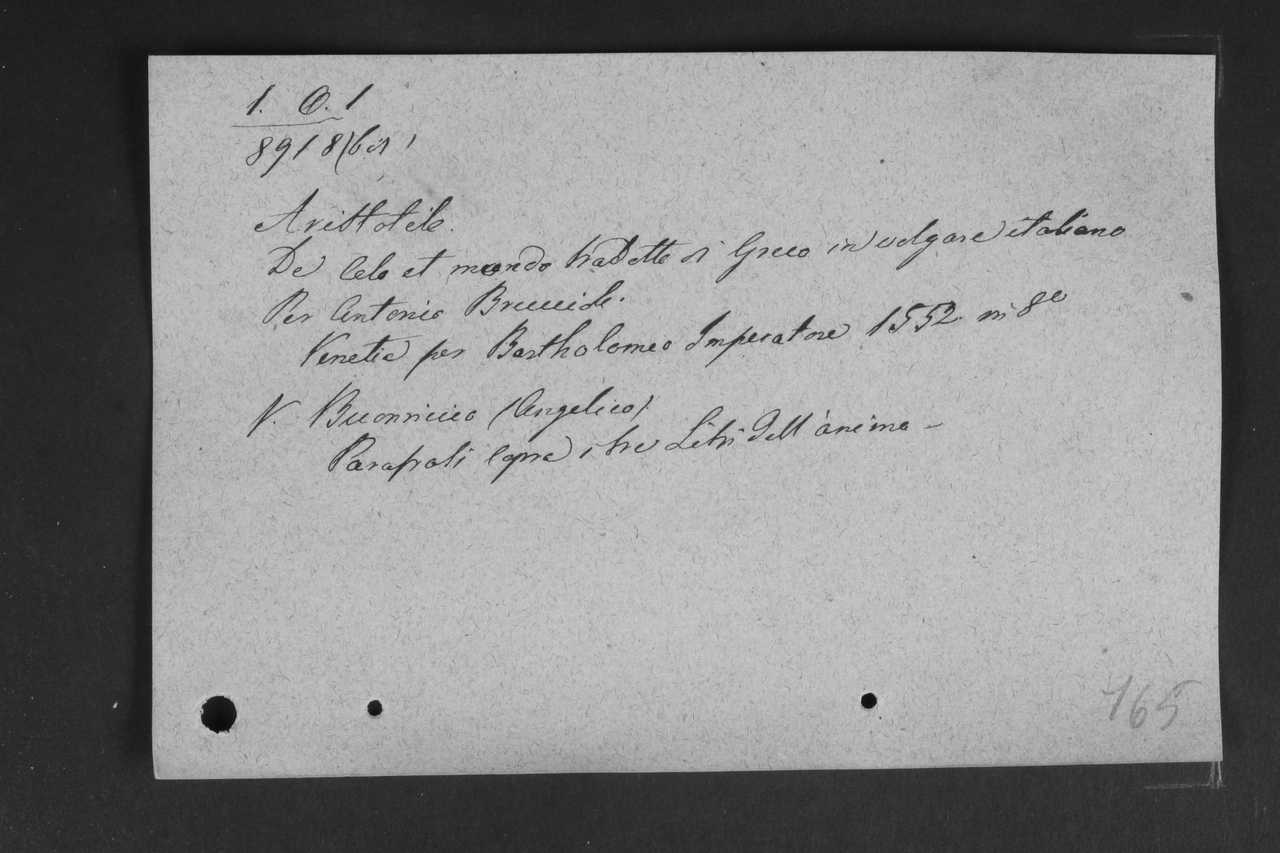 1. O. 1
8918 (bis)
Aristotile.
De Celo et mondo tradotto di Greco in volgare italiano
Per Antonio Bruccioli.
Venetia per Bartholomeo Imperatore 1552 in 8º
V. Buonriccio (Angelico)
Parafrasi sopra i tre Libri dell'anima -
765